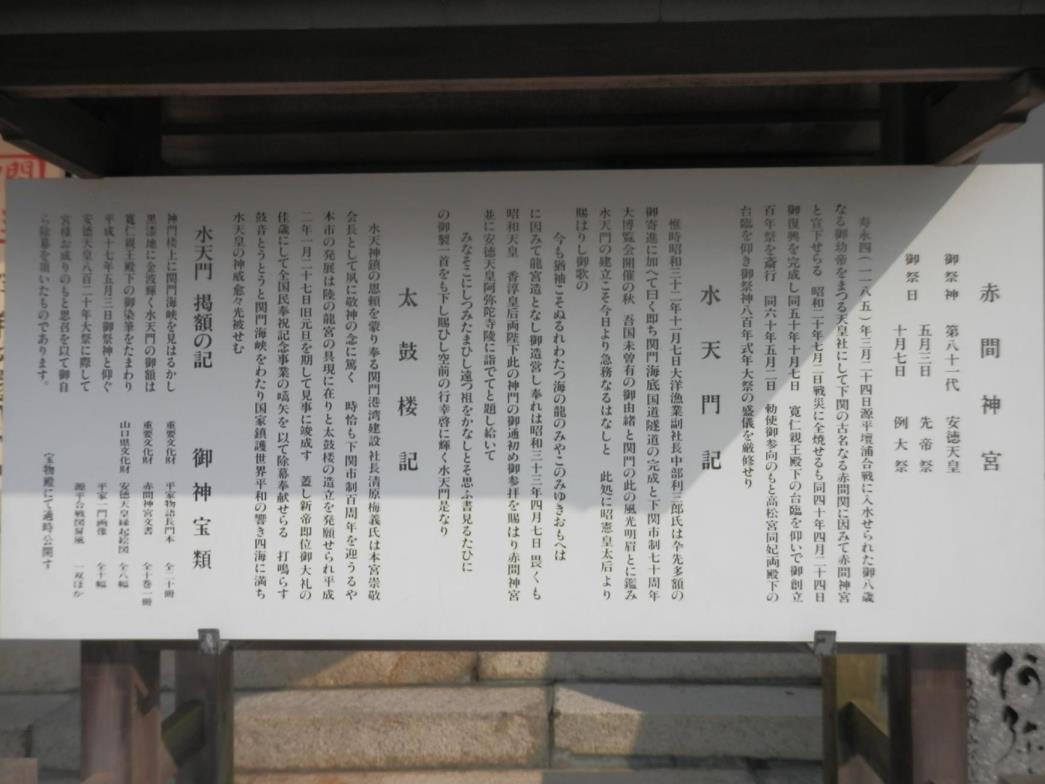 赤間神宮
御祭神　第八十一代　安徳天皇
御祭日　五月三日　先帝祭
十月七日　例大祭
寿永四(一一八五)年三月二十四日源平壇浦合戦に入水せられた御八歳
なる御幼帝をまつる天皇社にして下関の古名なる赤間関に因みて赤間神宮
と宣下せらる　昭和二十年七月二日戦災に全焼せるも同四十年四月二十四日
御復興を完成し同五十年十月七日　寛仁親王殿下の台臨を仰いで御創立
百年祭を斎行　同六十年五月二日　勅使御参向のもと高松宮同妃両殿下の
台臨を仰き御祭神八百年式年大祭の盛儀を厳修せり
水天門記
惟時昭和三十二年十一月七日大洋漁業副社長中部利三郎氏は率先多額の
御寄進に加へて曰く即ち関門海底国道隧道の完成と下関市制七十周年
大博覧会開催の秋　吾国未曽有の御由緒と関門の此の風光明眉とに鑑み
水天門の建立こそ今日より急務なるはなしと　此処に昭憲皇太后より
賜はりし御歌の
今も猶袖こそぬるれわたつ海の龍のみやこのみゆきおもへは
に因みて龍宮造となし御造営し奉れは昭和三十三年四月七日　畏くも
昭和天皇　香淳皇后両陛下此の神門の御通初め御参拝を賜はり赤間神宮
並に安徳天皇阿弥陀寺陵に詣でてと題し給いて
みなそこにしつみたまひし遠つ祖をかなしとそ思ふ書見るたひに
の御製一首をも下し賜ひし空前の行幸啓に輝く水天門是なり
太鼓楼記
水天神鎮の恩頼を蒙り奉る関門港湾建設　社長清原梅義氏は本宮崇敬
会長として夙に敬神の念に篤く　時恰も下関市制百周年を迎うるや
本市の発展は陸の龍宮の具現に在りと太鼓楼の造立を発願せられ平成
二年一月二十七日旧元旦を期して見事に竣成す　蓋し新帝即位御大礼の
佳歳にして全国民奉祝記念事業の嚆矢を以て除幕奉献せらる　打鳴らす
鼓音とうとうと関門海峡をわたり国家鎮護世界平和の響き四海に満ち
水天皇の神威愈々光被せむ
水天門　掲額の記
神門楼上に関門海峡を見はるかし
黒漆地に金波輝く水天門の御額は
寛仁親王殿下の御染筆をたまわり
平成十七年五月三日御祭神と仰ぐ
安徳天皇八百二十年大祭に際して
宮様お成りのもと思召を以て御自
ら除幕を頂いたものであります。
御神宝類
重要文化財　平家物語長門本　全二十冊
重要文化財　赤間神宮文書　全十巻一冊
山口県文化財　安徳天皇縁起絵図　全八幅
平家一門画像　全十幅
源平合戦図屏風　一双ほか
宝物殿にて適時公開す